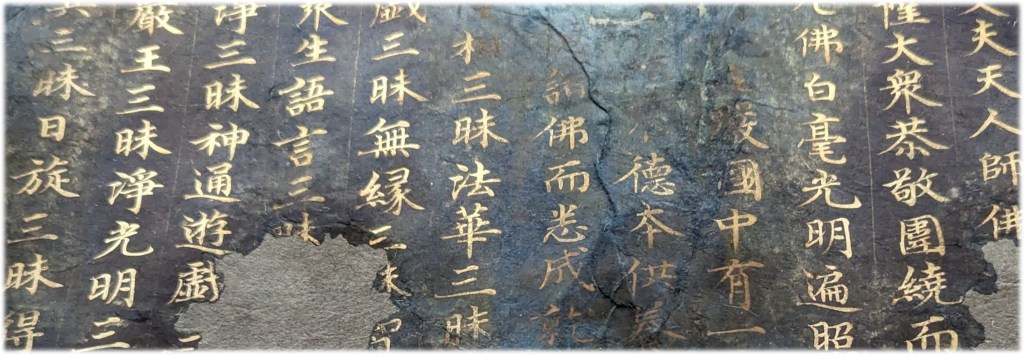 夫天人師佛
大衆恭敬圍繞而
佛白毫光明遍照
嚴國中有一
德本供養
諸佛而悉成就
相三昧法華三昧
戲三昧無緣三昧
衆生語言三昧
淨三昧神通遊戲三
嚴王三昧淨光明三
三昧日旋三昧得